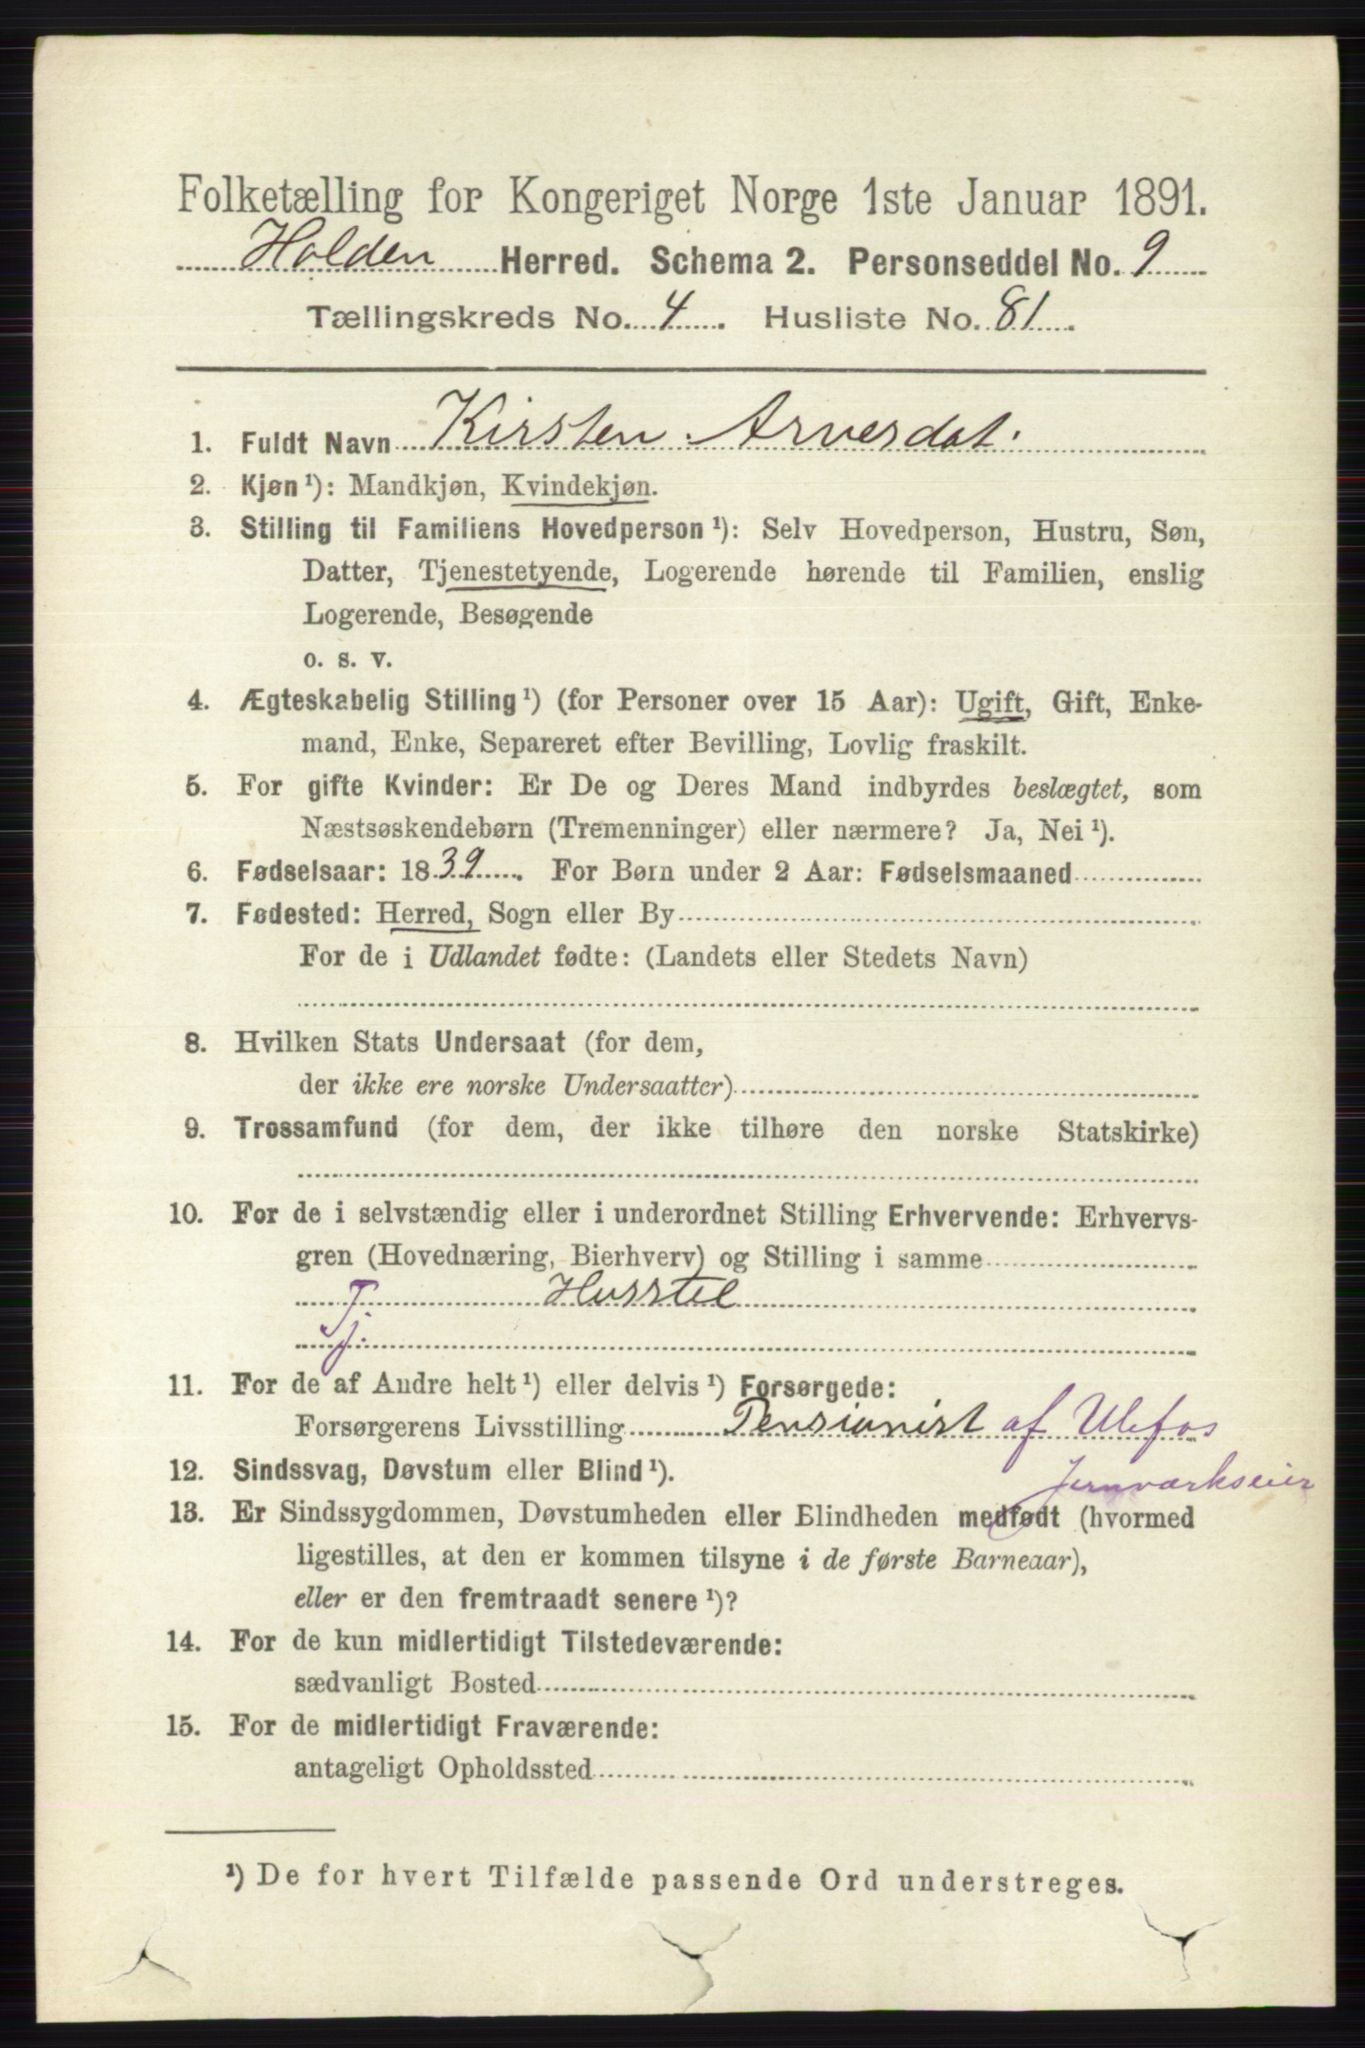 Folketælling for Kongeriget Norge 1ste Januar 1891.
Holden Herred. Schema 2. Personseddel No. 9
Tællingskreds No. 4. Husliste No. 81.
1. Fuldt Navn Kirsten Arverdat.
2. Kjøn¹): Mandkjøn, Kvindekjøn.
3. Stilling til Familiens Hovedperson¹): Selv Hovedperson, Hustru, Søn,
Datter, Tjenestetyende, Logerende hørende til Familien, enslig
Logerende, Besøgende
o. s. v.
4. Ægteskabelig Stilling¹) (for Personer over 15 Aar): Ugift, Gift, Enke-
mand, Enke, Separeret efter Bevilling, Lovlig fraskilt.
5. For gifte Kvinder: Er De og Deres Mand indbyrdes beslægtet, som
Næstsøskendebørn (Tremenninger) eller nærmere? Ja, Nei¹).
6. Fødselsaar: 1839. For Børn under 2 Aar: Fødselsmaaned
7. Fødested: Herred, Sogn eller By
For de i Udlandet fødte: (Landets eller Stedets Navn)
8. Hvilken Stats Undersaat (for dem,
der ikke ere norske Undersaatter)
9. Trossamfund (for dem, der ikke tilhøre den norske Statskirke)
10. For de i selvstændig eller i underordnet Stilling Erhvervende: Erhvervs-
gren (Hovednæring, Bierhverv) og Stilling i samme
Husstel
Tj.
11. For de af Andre helt¹) eller delvis¹) Forsørgede:
Forsørgerens Livsstilling Pensionist af Ulefos
Jernværkseier
12. Sindssvag, Døvstum eller Blind¹).
13. Er Sindssygdommen, Døvstumheden eller Blindheden medfødt (hvormed
ligestilles, at den er kommen tilsyne i de første Barneaar),
eller er den fremtraadt senere¹)?
14. For de kun midlertidigt Tilstedeværende:
sædvanligt Bosted
15. For de midlertidigt Fraværende:
antageligt Opholdssted
¹) De for hvert Tilfælde passende Ord understreges.